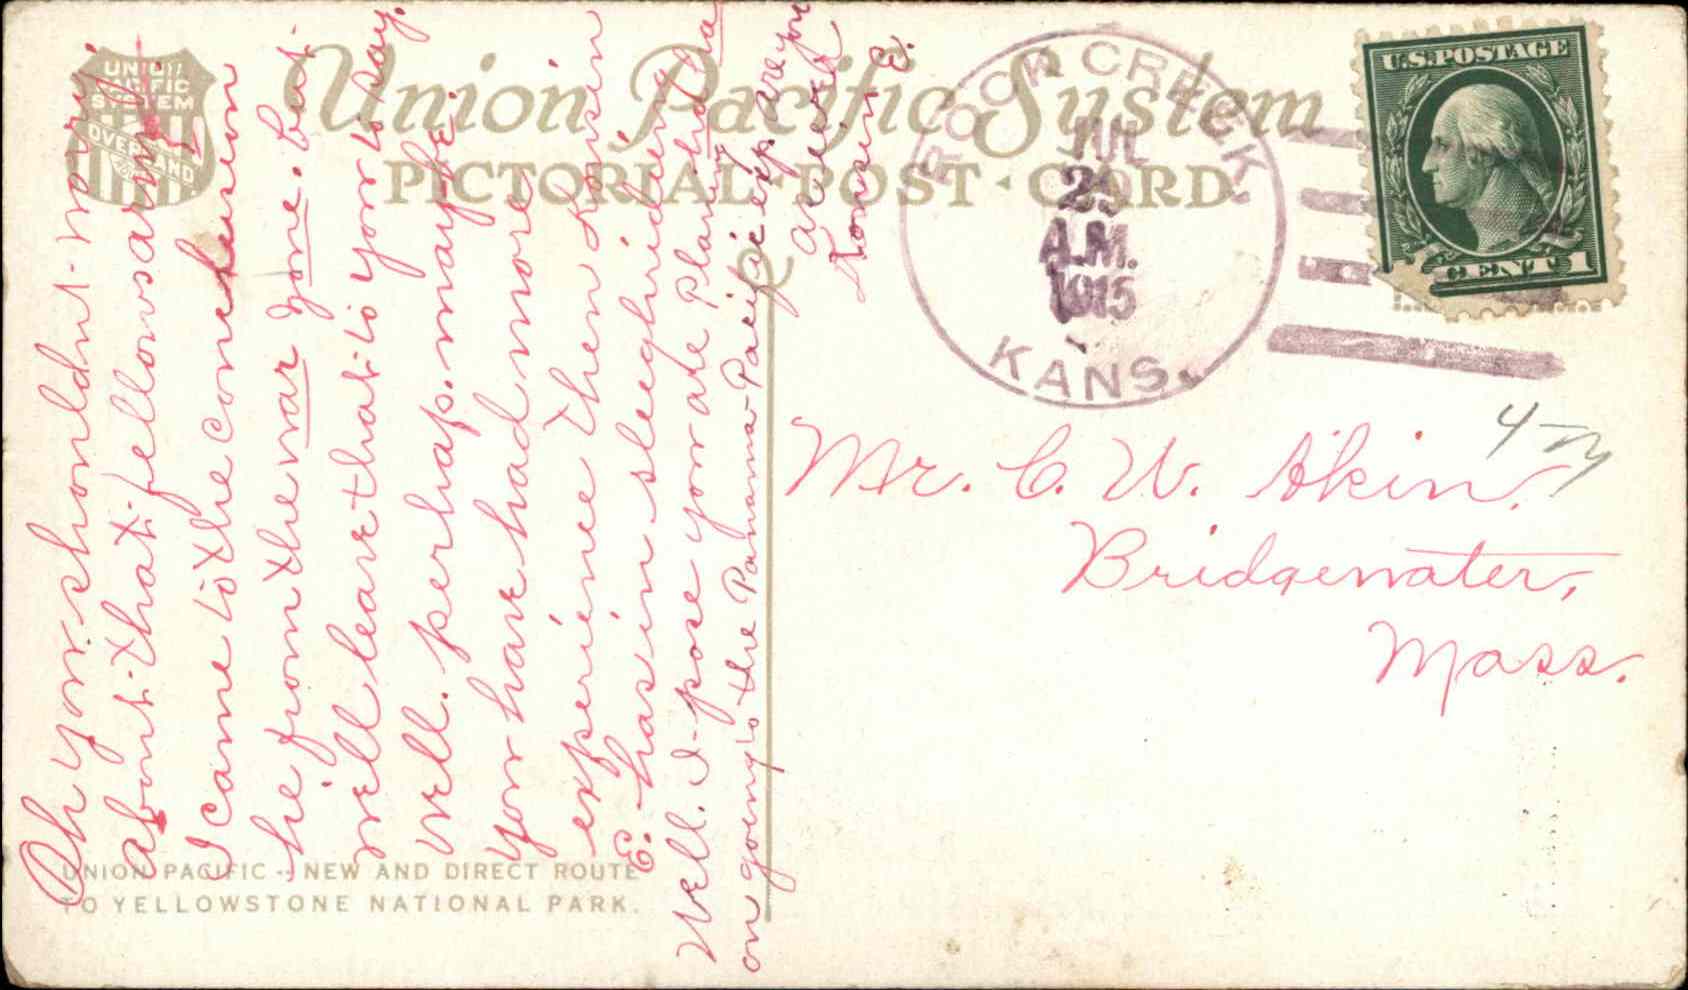 UNION
PACIFIC
SYSTEM
OVERLAND
Union Pacific System
PICTORIAL · POST · CARD
ROCK CREEK
JUL
29
A.M.
1915
KANS.
U.S. POSTAGE
CENT 1
4-
Mr. C. W. Akin,
Bridgewater,
Mass.
Oh you shouldn't worry
about that fellows arm
I came to the conclusion
he from the war zone. but
will leave that to you to say.
well. perhaps. may be
you have had more
experience then Cousin
E. has in sleighriding
Well. I-pose you are planing
on going to the Panama-Pacific exp are you
Cousin E.
UNION PACIFIC - NEW AND DIRECT ROUTE
TO YELLOWSTONE NATIONAL PARK.